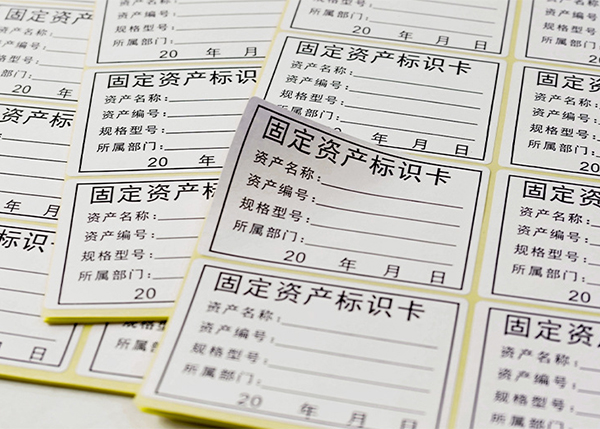 固定资产
资产名称:
资产编号:
规格型号:
所属部门:
20 年 月 日
资产名称:
资产编号:
规格型号:
所属部门:
20 年 月 日
资产编号:
规格型号:
所属部门:
20 年 月 日
固定资产标识卡
资产名称:
资产编号:
规格型号:
所属部门:
20 年
固定资产标识卡
资产名称:
资产编号:
规格型号:
月 日
固定资产标识
资产名称:
资产编号:
规格型号:
所属部门:
20
固定资产标识卡
资产名称:
资产编号:
规格型号:
所属部门:
20
固定资产标识卡
资产名称:
资产编号:
规格型号:
所属部门:
20 年 月 日
固定资产标识卡
资产名称:
资产编号:
规格型号:
所属部门:
20 年 月 日
固定资产标
资产名称:
资产编号:
规格型号:
所属部门:
20
固定资产
资产名称:
资产编号:
规格型号:
所属部门: